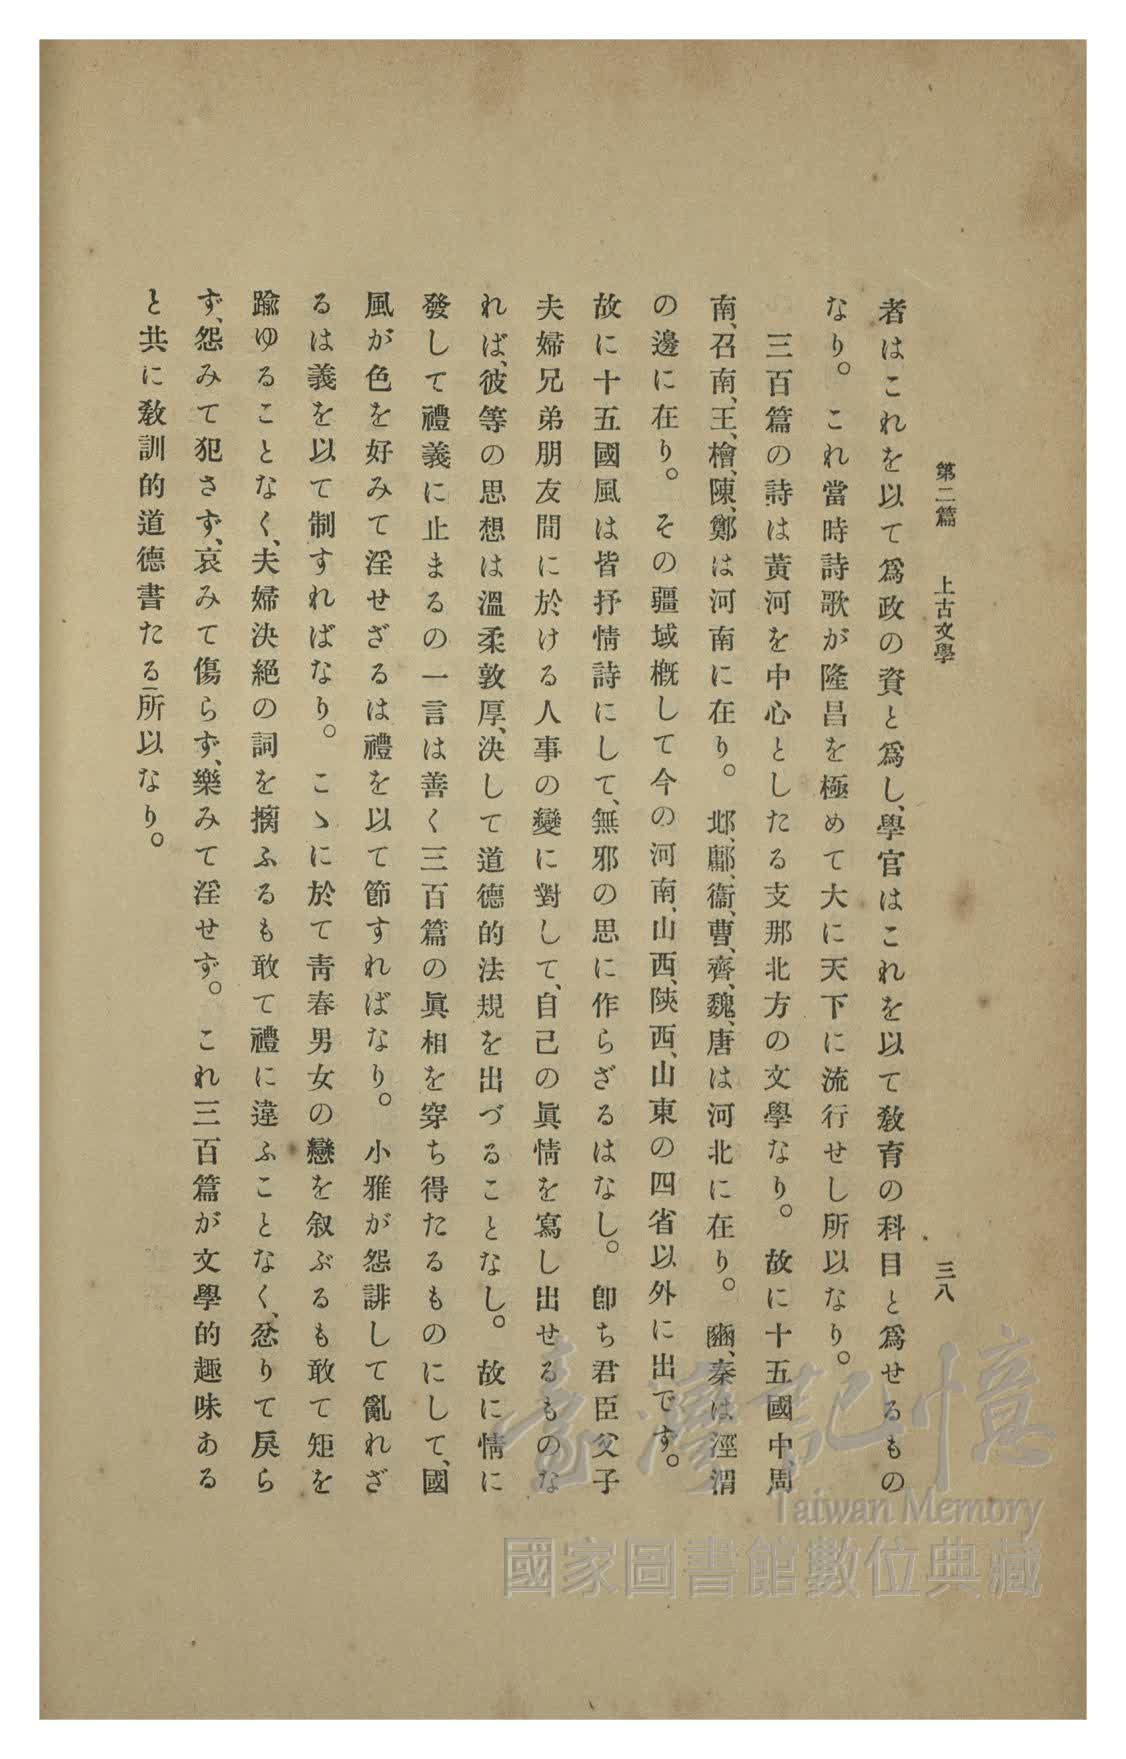 第二篇　上古文學　三八
者はこれを以て爲政の資と爲し、學官はこれを以て敎育の科目と爲せるもの
なり。これ當時詩歌が隆昌を極めて大に天下に流行せし所以なり。
三百篇の詩は黃河を中心としたる支那北方の文學なり。故に十五國中、周
南、召南、王、檜、陳、鄭は河南に在り。邶、鄘、衞、曹、齊、魏、唐は河北に在り。豳、秦は涇渭
の邊に在り。その疆域槪して今の河南、山西、陝西、山東の四省以外に出です。
故に十五國風は皆抒情詩にして、無邪の思に作らざるはなし。卽ち君臣父子
夫婦兄弟朋友間に於ける人事の變に對して、自己の眞情を寫し出せるものな
れば、彼等の思想は溫柔敦厚、決して道德的法規を出づることなし。故に情に
發して禮義に止まるの一言は善く三百篇の眞相を穿ち得たるものにして、國
風が色を好みて淫せざるは禮を以て節すればなり。小雅が怨誹して亂れざ
るは義を以て制すればなり。こゝに於て靑春男女の戀を叙ぶるも敢て矩を
踰ゆることなく、夫婦決絕の詞を摛ふるも敢て禮に違ふことなく、忿りて戾ら
ず、怨みて犯さず、哀みて傷らず、樂みて淫せず。これ三百篇が文學的趣味ある
と共に敎訓的道德書たる所以なり。
臺灣記憶
Taiwan Memory
國家圖書館數位典藏